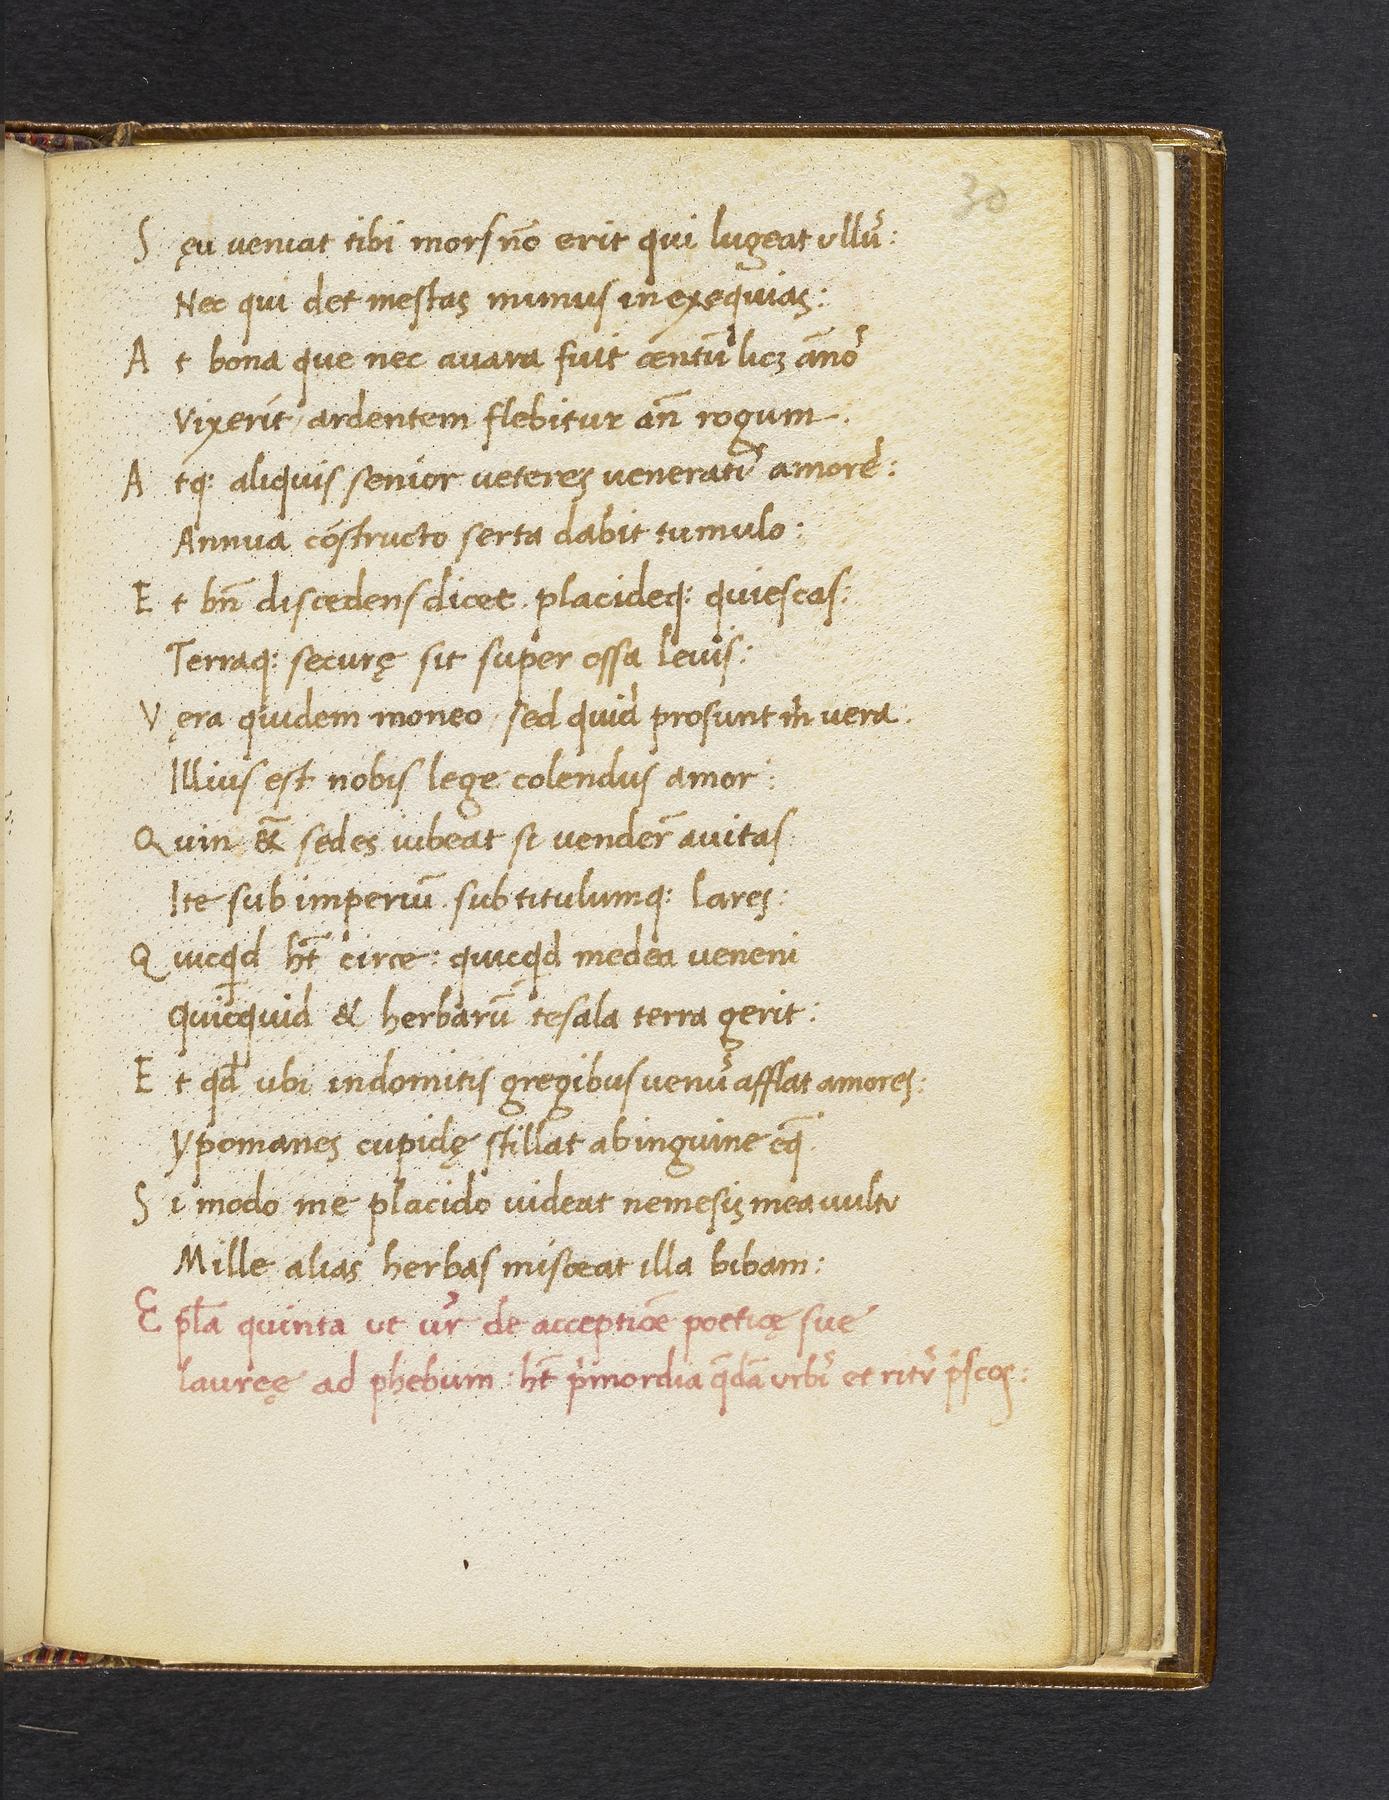 30
S ęu veniat tibi mors nō erit qui lugeat ullū:
Nec qui det mestas munus in exequias:
A t bona que nec auara fuit centū licz āno
Vixerit / ardentem flebitur an̄ rogum.
A tq: aliquis senior veteres venerat' amore:
Annua cōstructo serta dabit tumulo:
E t bn̄ discedens dicet. placideq: quiescas:
Terraq: securę sit super ossa leuis:
V ęra quidem moneo / sed quid prosunt m̄ vera.
Illius est nobis lege colendus amor:
Q uin &̄ sedes iubeat si vender̄ auitas
Ite sub imperiū sub titulumq: lares:
Q uicqd ht̄ circe: quicqd medea veneni
Quicquid & herbarū tesala terra gerit:
E t qd ubi indomitis gregibus venus afflat amores:
Ypomanes cupidę stillat ab inguine eq̄
S i modo me placido uideat nemesis mea uultu
Mille alias herbas misceat illa bibam:
E pl̄a quinta ut ur̄ de acceptiōe poeticę sue
laureę ad phebum: ht̄ p'mordia q̄dā urb' et rit' p'scoꝝ: